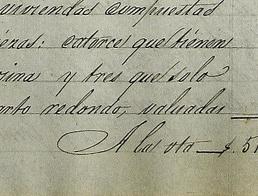 viviendas compuestas
ezas: catorce que tienen
cina y tres que solo
arto redondo, valuadas
A la vta $. 51